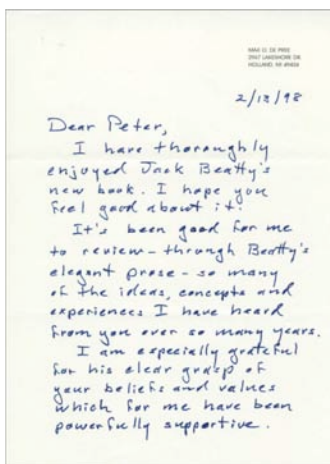 MAX O. DE PREE
HOLLAND, MI 49424
2/13/98
Dear Peter,
I have thoroughly
enjoyed Jack Beatty's
new book. I hope you
feel good about it.
It's been good for me
to review - through Beatty's
elegant prose - so many
of the ideas, concepts and
experiences I have heard
from you over so many years.
I am especially grateful
for his clear grasp of
your beliefs and values
which for me have been
powerfully supportive.